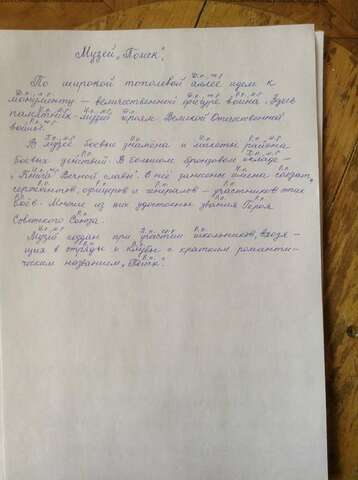 Музей „Поиск".
По широкой тополевой аллее идем к
монументу – величественной фигуре воина. Здесь
памятник-музей героям Великой Отечественной
войны.
В музее боевые знамёна и макеты района
боевых действий. В большом бронзовом окладе –
„Книга Вечной славы". В неё занесены имена солдат,
сержантов, офицеров и генералов – участников этих
боёв. Многие из них удостоены звания Героя
Советского Союза.
Музей создан при участии школьников, входя-
щих в отряды и клубы с кратким романти-
ческим названием „Поиск".